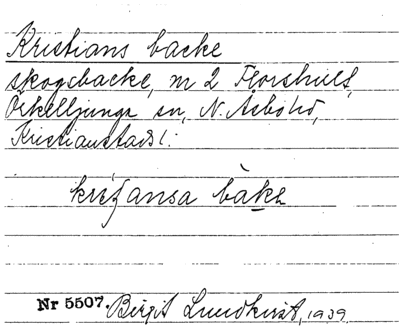 Kristians backe
skogsbacke, m 2 Florshult,
Örkelljunga sn, N. Åsbo hd,
Kristianstads l.
backe
Nr 5507. Birgit Lundkvist, 1939